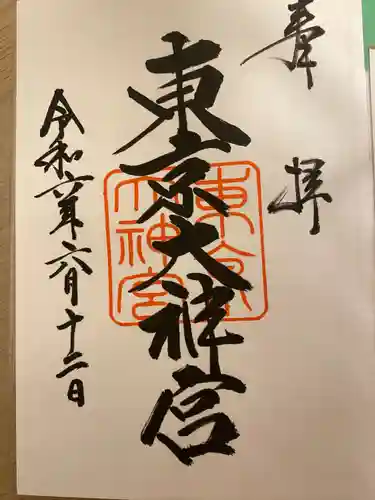 奉拝
東京大神宮
東京大神宮
令和六年六月十二日